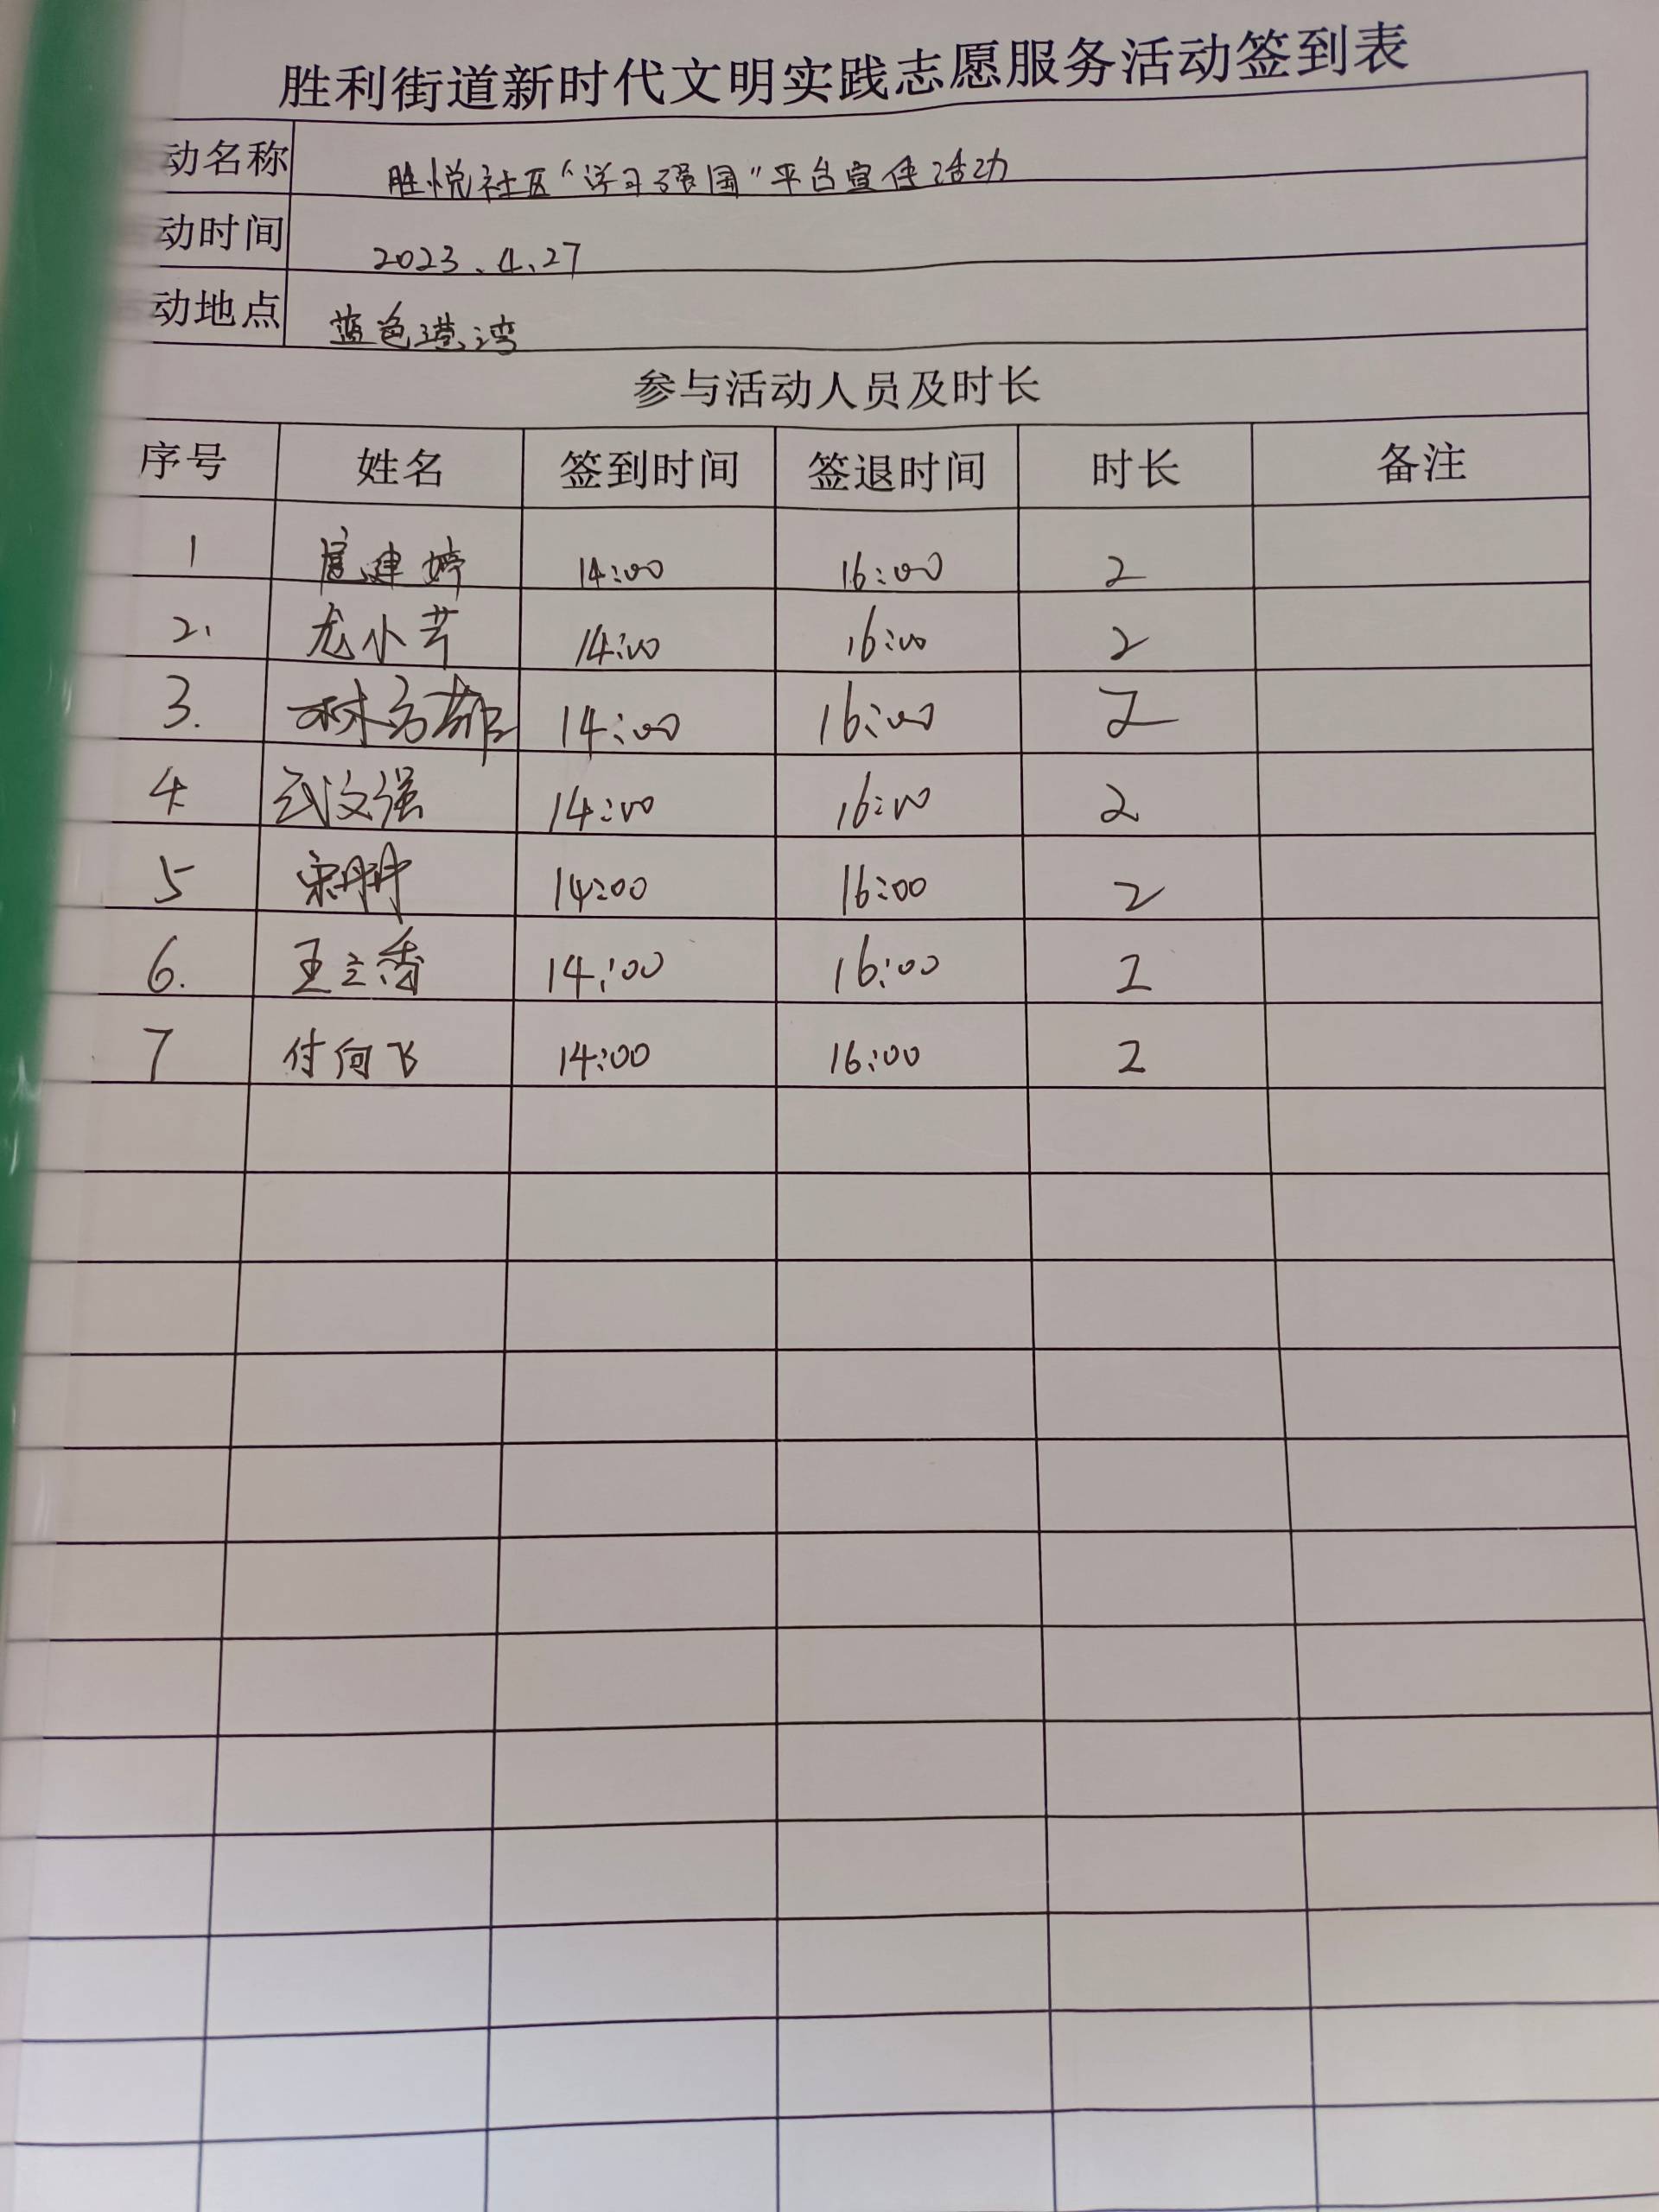 胜利街道新时代文明实践志愿服务活动签到表
动名称 胜悦社区“学习强国”平台宣传活动
动时间 2023.4.27
动地点 蓝色港湾
参与活动人员及时长
序号 姓名 签到时间 签退时间 时长 备注
1 扈建婷 14:00 16:00 2
2. 尤小芹 14:00 16:00 2
3. 14:00 16:00 2
4 武文强 14:00 16:00 2
5 宋丹丹 14:00 16:00 2
6. 王立香 14:00 16:00 2
7 付向飞 14:00 16:00 2